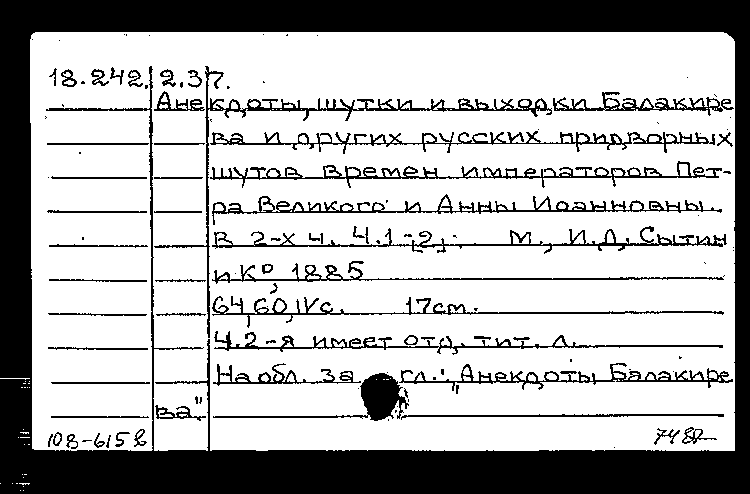 18.242.2.37.
Анекдоты, шутки и выходки Балакире
ва и других русских придворных
шутов времен императоров Пет-
ра Великого и Анны Иоанновны.
В 2-х ч. Ч.1-[2].  М., И.Д. Сытин
и К°, 1885
64,60,IVс.  17см.
Ч.2-я имеет отд. тит. л.
На обл. за гл.: "Анекдоты Балакире
ва".
108-615б